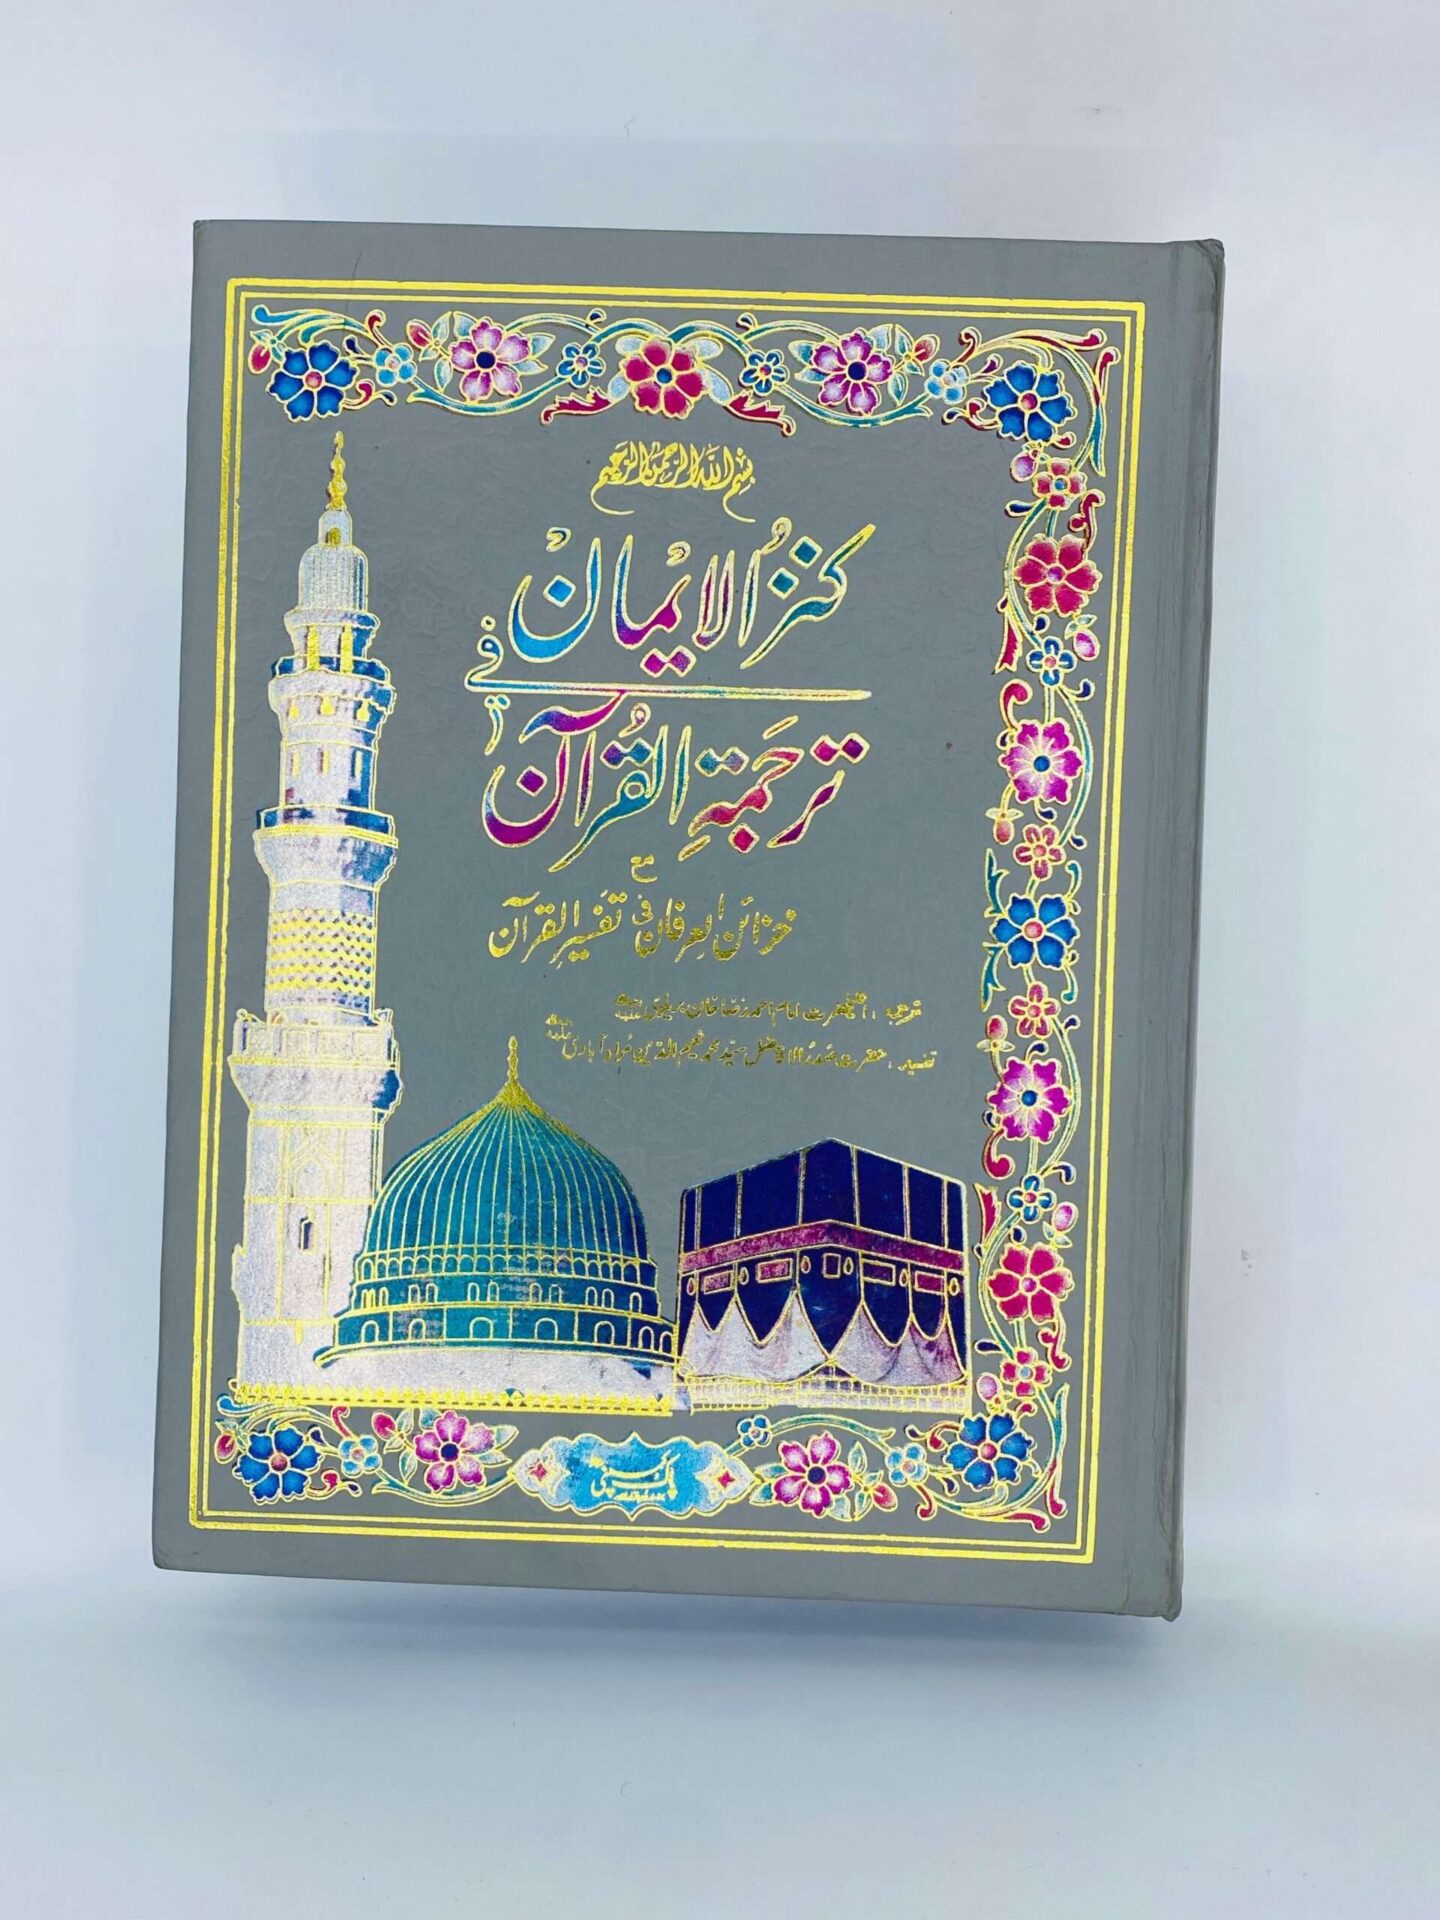 بسم الله الرحمن الرحيم
کنزُالایمان فی
ترجَمۃِ القُرآن
مع
خزائن العرفان فی تفسیرِ القرآن
ترجمہ : اعلیٰحضرت امام احمد رضا خان بریلوی رحمۃ اللہ علیہ
تفسیر : حضرت صدر الافاضل سیّد محمد نعیم الدین مراد آبادی رحمۃ اللہ علیہ
پاک کمپنی